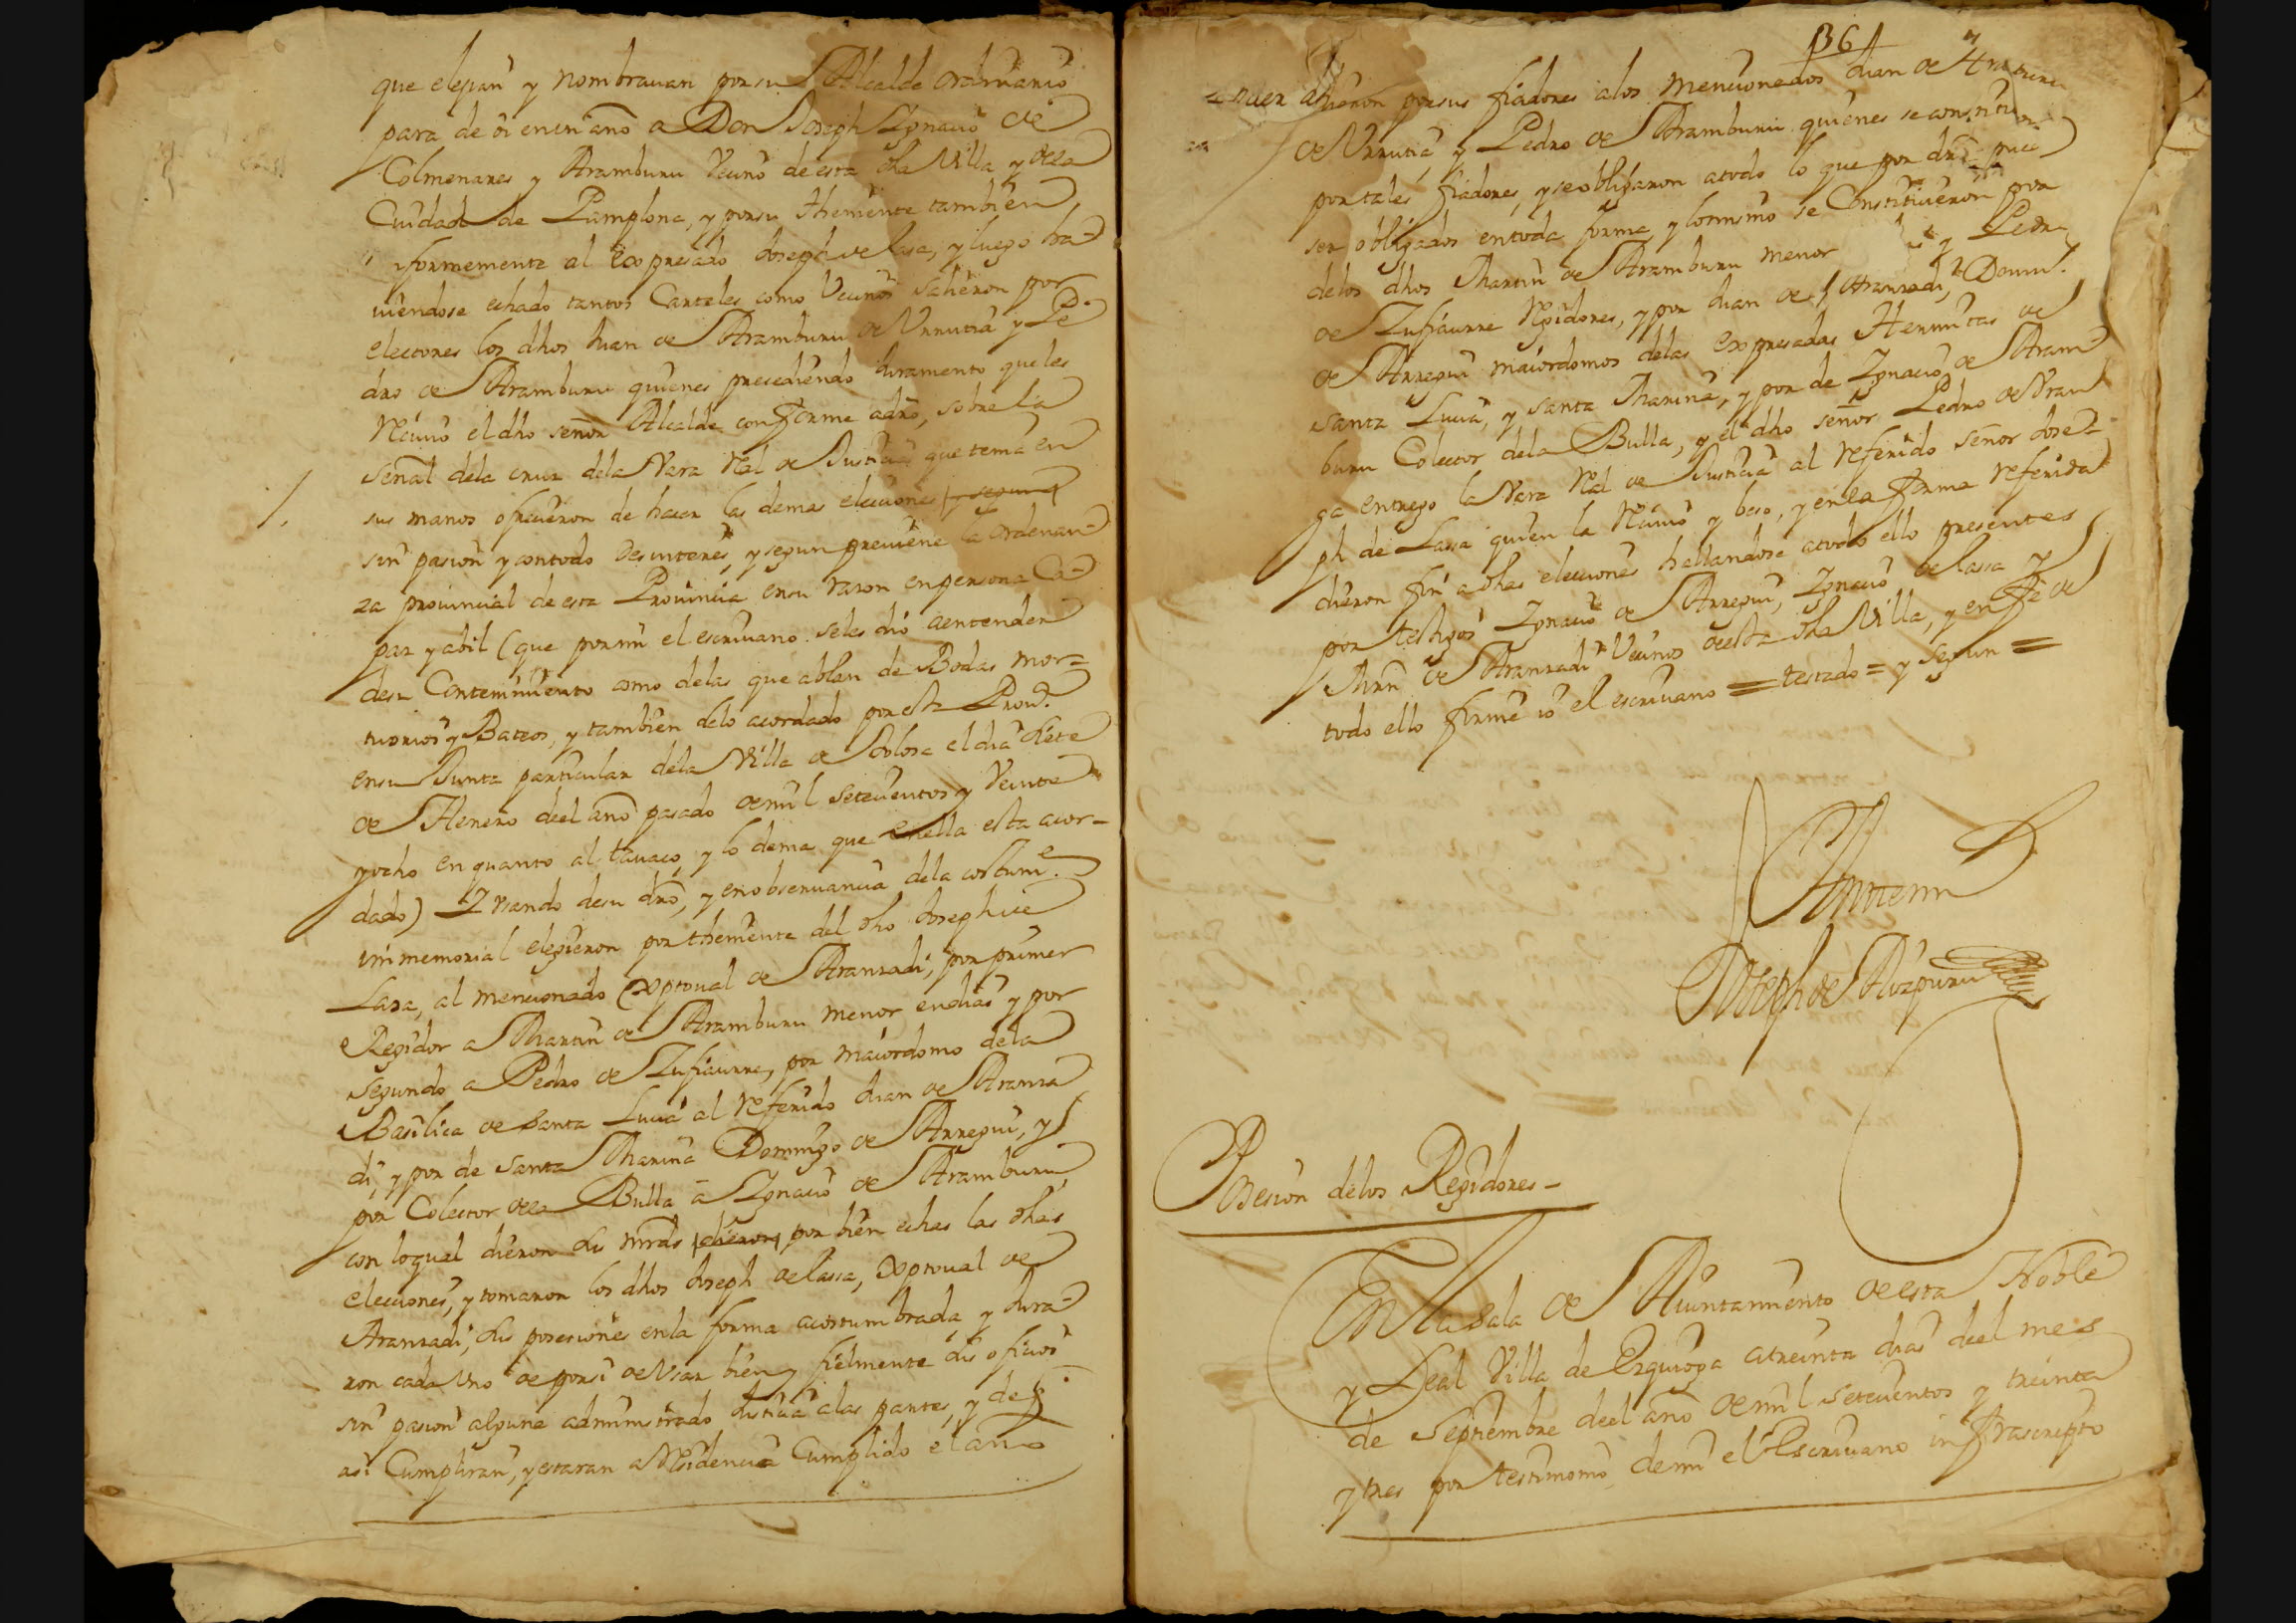 que elejian y nombravan por su Alcalde ordinario
para de oi en un año a Don Joseph Ignacio de
Colmenares y Aramburu Vecino de esta dha Villa y de la
Ciudad de Pamplona, y por su Theniente tambien
formemente al Expresado Joseph de Lasa, y luego ha-
viendose echado tantos Carteles como Vecinos salieron por
electores los dhos Juan de Aramburu de Urrutia y Pe-
dro de Aramburu quienes precediendo Juramento que les
Reciuio el dho señor Alcalde conforme a dro, sobre la
señal de la cruz de la Vara Rl de Justicia que tenia en
sus manos ofrecieron de hacer las demas elecciones y segun
sin pasion y con todo desinteres, y segun previene la ordenan-
za provincial de esta Provincia en su razon en persona Ca-
paz y abil (que por mi el escrivano se les dio a entender
de su Contenimiento como de las que ablan de Bodas mor-
tuorios y Bateos, y tambien de lo acordado por esta Prova.
en su Junta particular de la Villa de Tolosa el dia siete
de Henero de el año pasado de mil setecientos y Veinte
y ocho en quanto al tavaco, y lo dema que en ella esta acor-
dado) I usando de su dro, y en observancia de la costume.
inmemorial elegieron por theniente del dho Joseph de
Lasa, al mencionado Xptoual de Aranzadi, por primer
Regidor a Martin de Aramburu menor en dias y por
segundo a Pedro de Zufiaurre, por maiordomo de la
Basilica de Santa Lucia al Referido Juan de Aranza
di, y por de Santa Marina Domingo de Arregui, y
por Colector de la Bulla a Ignacio de Aramburu,
con lo qual dieron sus mrds dieron por bien echas las dhas
elecciones, y tomaron los dhos Joseph de Lassa, Xptoual de
Aranzadi, sus posesiones en la forma acostumbrada, y Jura-
ron cada uno de por si de Usar bien y fielmente sus oficios
sin pasion alguna administrado Justicia a las partes, y de q.
asi Cumpliran, y estaran a Residencia Cumplido el año
361
dieron por sus fiadores a los mencionados Juan de
de Urrutia, y Pedro de Aramburu quienes se
por tales fiadores, y se obligaron a todo lo que por dro
ser obligados en toda forma, y lo mismo se Constituieron por
de los dhos Martin de Aramburu menor y Pedro
de Zufiaurre Regidores, y por Juan de Aranzadi, Domin.
de Arregui maiordomos de las Expresadas Hermitas de
Santa Lucia, y Santa Marina, y por de Ignacio de Aram-
buru Colector de la Bulla, y el dho señor Pedro de
ga entrego la Vara Rl de Justicia al Referido señor Jose-
ph de Lassa quien la Reciuio y beso, y en la forma referida
dieron fin a dhas elecciones hallandose a todo ello presentes
por testigos Ignacio de Arregui, Ignacio de Lassa y
Mrn de Aranzadi Vecinos de esta dha Villa, y en fe de
todo ello firme io el escrivano = testado = y segun =
Ante mi
Joseph de Aizpuru
Posesion de los Regidores -
En la Sala de Aiuntamiento de esta Noble
y Leal Villa de Ezquioga a treinta dias de el mes
de Septiembre de el año de mil setecientos y treinta
y tres por testimonio de mi el Escrivano infrascripto